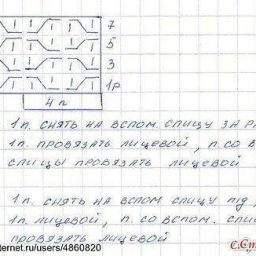 7
5
3
1р
4 п
1 п. снять на вспом. спицу за ра
1 п. провязать лицевой, п. со в
спицы провязать лицевой
1 п. снять на вспом спицу пд
1 п. лицевой, п. со вспом. спи
провязать лицевой
с.Ст
nternet.ru/users/4860820